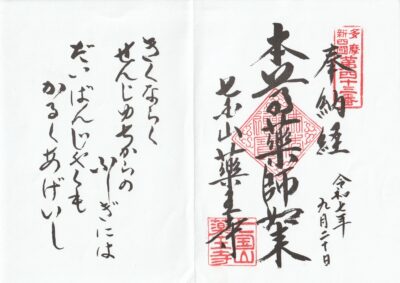 多摩
新四国
第四十三番
奉納経
令和七年
九月二十日
本尊薬師如来
山薬王寺
きくならく
せんじゆちからの
ふしぎには
だいばんじやくも
かるくあげいし